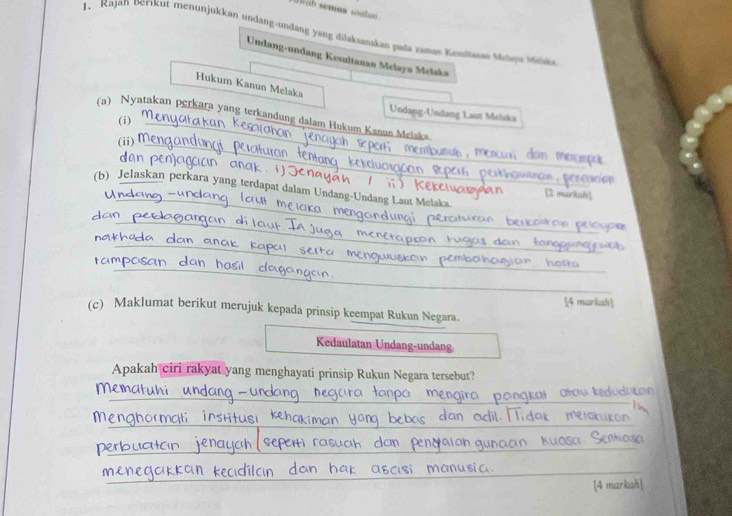 semua soalan.
1. Rajah berikut menunjukkan undang-undang yang dilaksanakan pada zaman Kesultanan Melayu Melaka.
Undang-undang Kesultanan Melayu Melaka
Hukum Kanun Melaka
Undang-Undang Laut Melaka
(a) Nyatakan perkara yang terkandung dalam Hukum Kanun Melaka.
(i) Menyatakan kesalahan jenayah seperti membunuh, mencuri dan merompak
(ii) Mengandungi peraturan tentang kekeluargaan seperti perkahwinan, penceraian
dan penjagaan anak. i) Jenayah / ii) Kekeluargaan
[2 markah]
(b) Jelaskan perkara yang terdapat dalam Undang-Undang Laut Melaka.
Undang-undang laut melaka mengandungi peraturan berkaitan pelayaran
dan perdagangan di laut. Ia juga menetapkan tugas dan tanggungjawab
nakhoda dan anak kapal serta menguruskan pembahagian harta
rampasan dan hasil dagangan.
[4 markah]
(c) Maklumat berikut merujuk kepada prinsip keempat Rukun Negara.
Kedaulatan Undang-undang
Apakah ciri rakyat yang menghayati prinsip Rukun Negara tersebut?
Mematuhi undang-undang negara tanpa mengira pangkat atau kedudukan
Menghormati institusi kehakiman yang bebas dan adil. Tidak melakukan
perbuatan jenayah seperti rasuah dan penyalahgunaan kuasa. Sentiasa
menegakkan keadilan dan hak asasi manusia.
[4 markah]